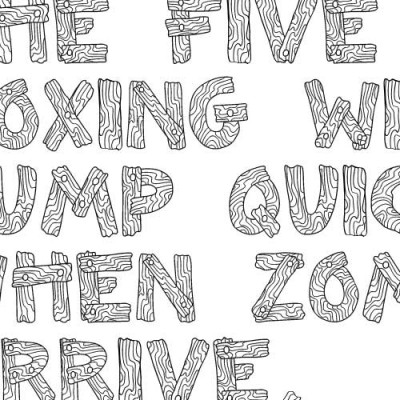 HE FIVE
OXING WI
UMP QUIC
WHEN ZOM
RRIVE.